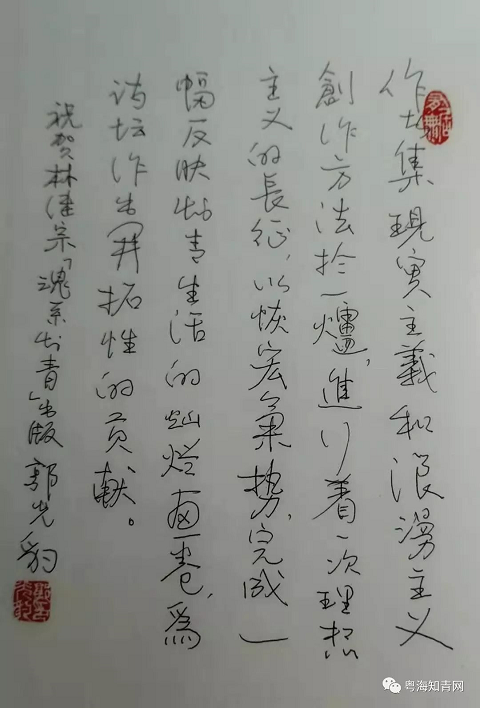 作者集現實主義和浪漫主义
創作方法於一爐，進行着一次理想
主义的長征，以恢宏氣势，完成一
幅反映知青生活的灿烂画卷，為
诗坛作出開拓性的贡献。
祝贺林宗「魂系知青」出版 郭光豹
粤海知青网